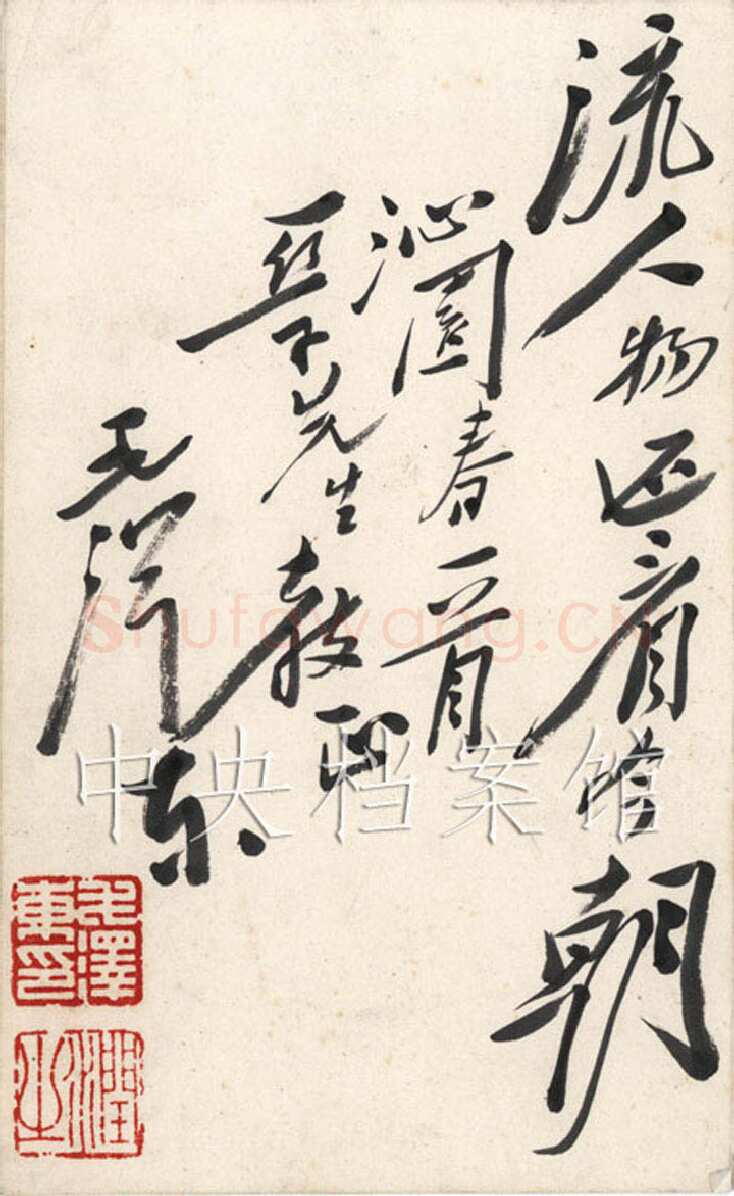 流人物还看今朝
沁园春一首
亚子先生教正
毛泽东
毛泽东印
润之
Shufawang.CN
中央档案馆